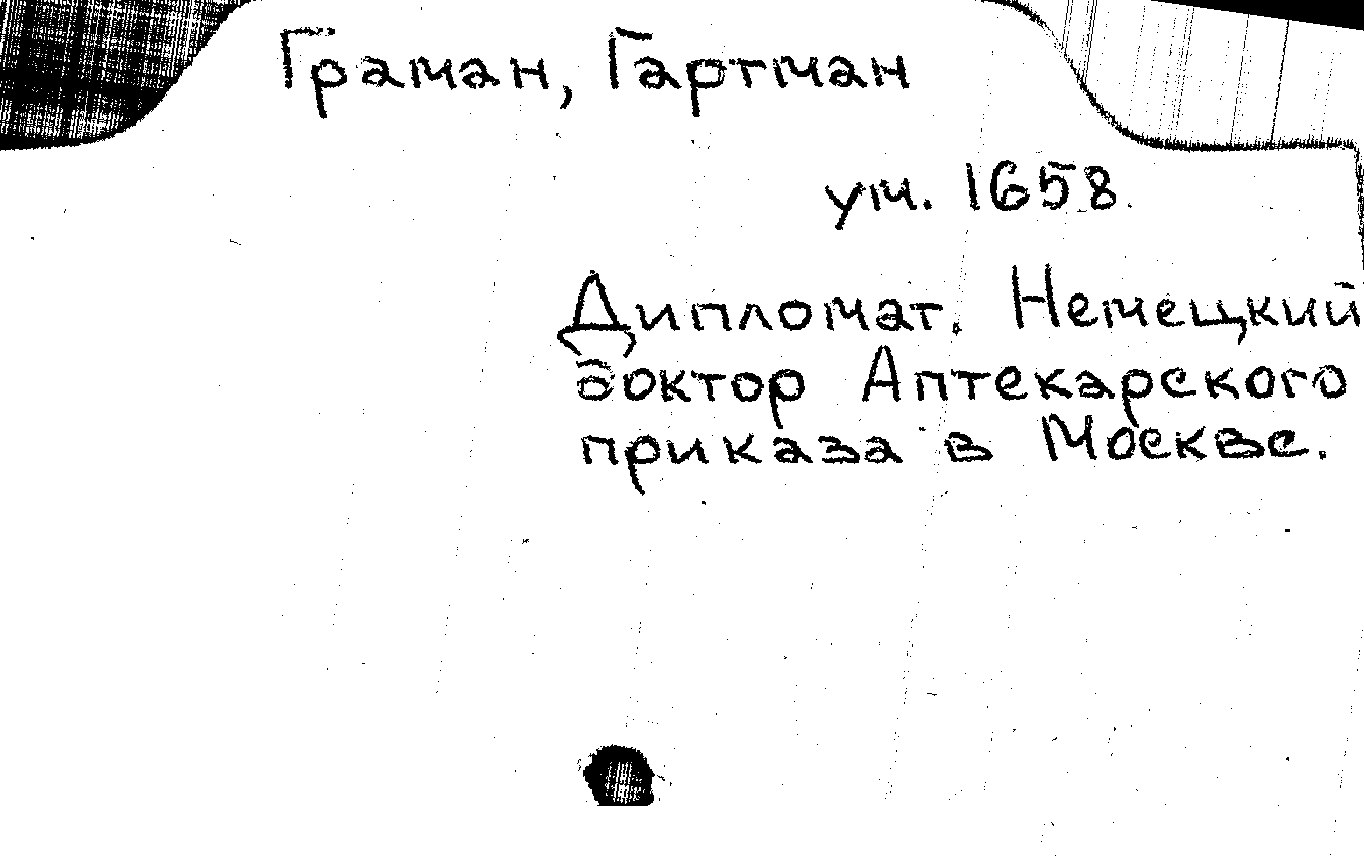 Граман, Гартман
ум. 1658
Дипломат. Немецкий
доктор Аптекарского
приказа в Москве.